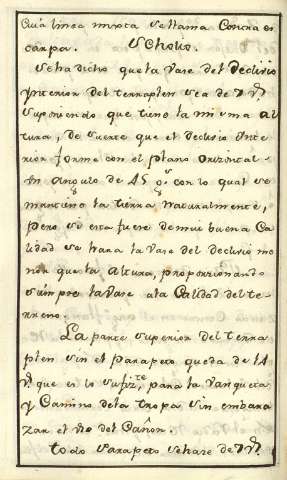 Cuia linea mixta se llama Contra es
carpa. Scholio.
Se ha dicho que la vase del Declivio
Ynterior del terraplen sea de
Suponiendo que tiene la misma al
tura, de suerte que el declivio Ynte
rior forme con el plano orizontal
un angulo de 45 gs con lo qual se
mantiene la tierra naturalmente,
pero si esta fuere de mui buena Ca
lidad se hara la vase del declivio me
nor que la altura, proporcionando
siempre la vase ala Calidad del te-
rreno.
La parte superior del terra
plen sin el Parapeto queda de
que es lo sufizte para la Vanqueta
y Camino de la tropa sin embara
zar el uso del Cañon.
todo Parapeto se hare de